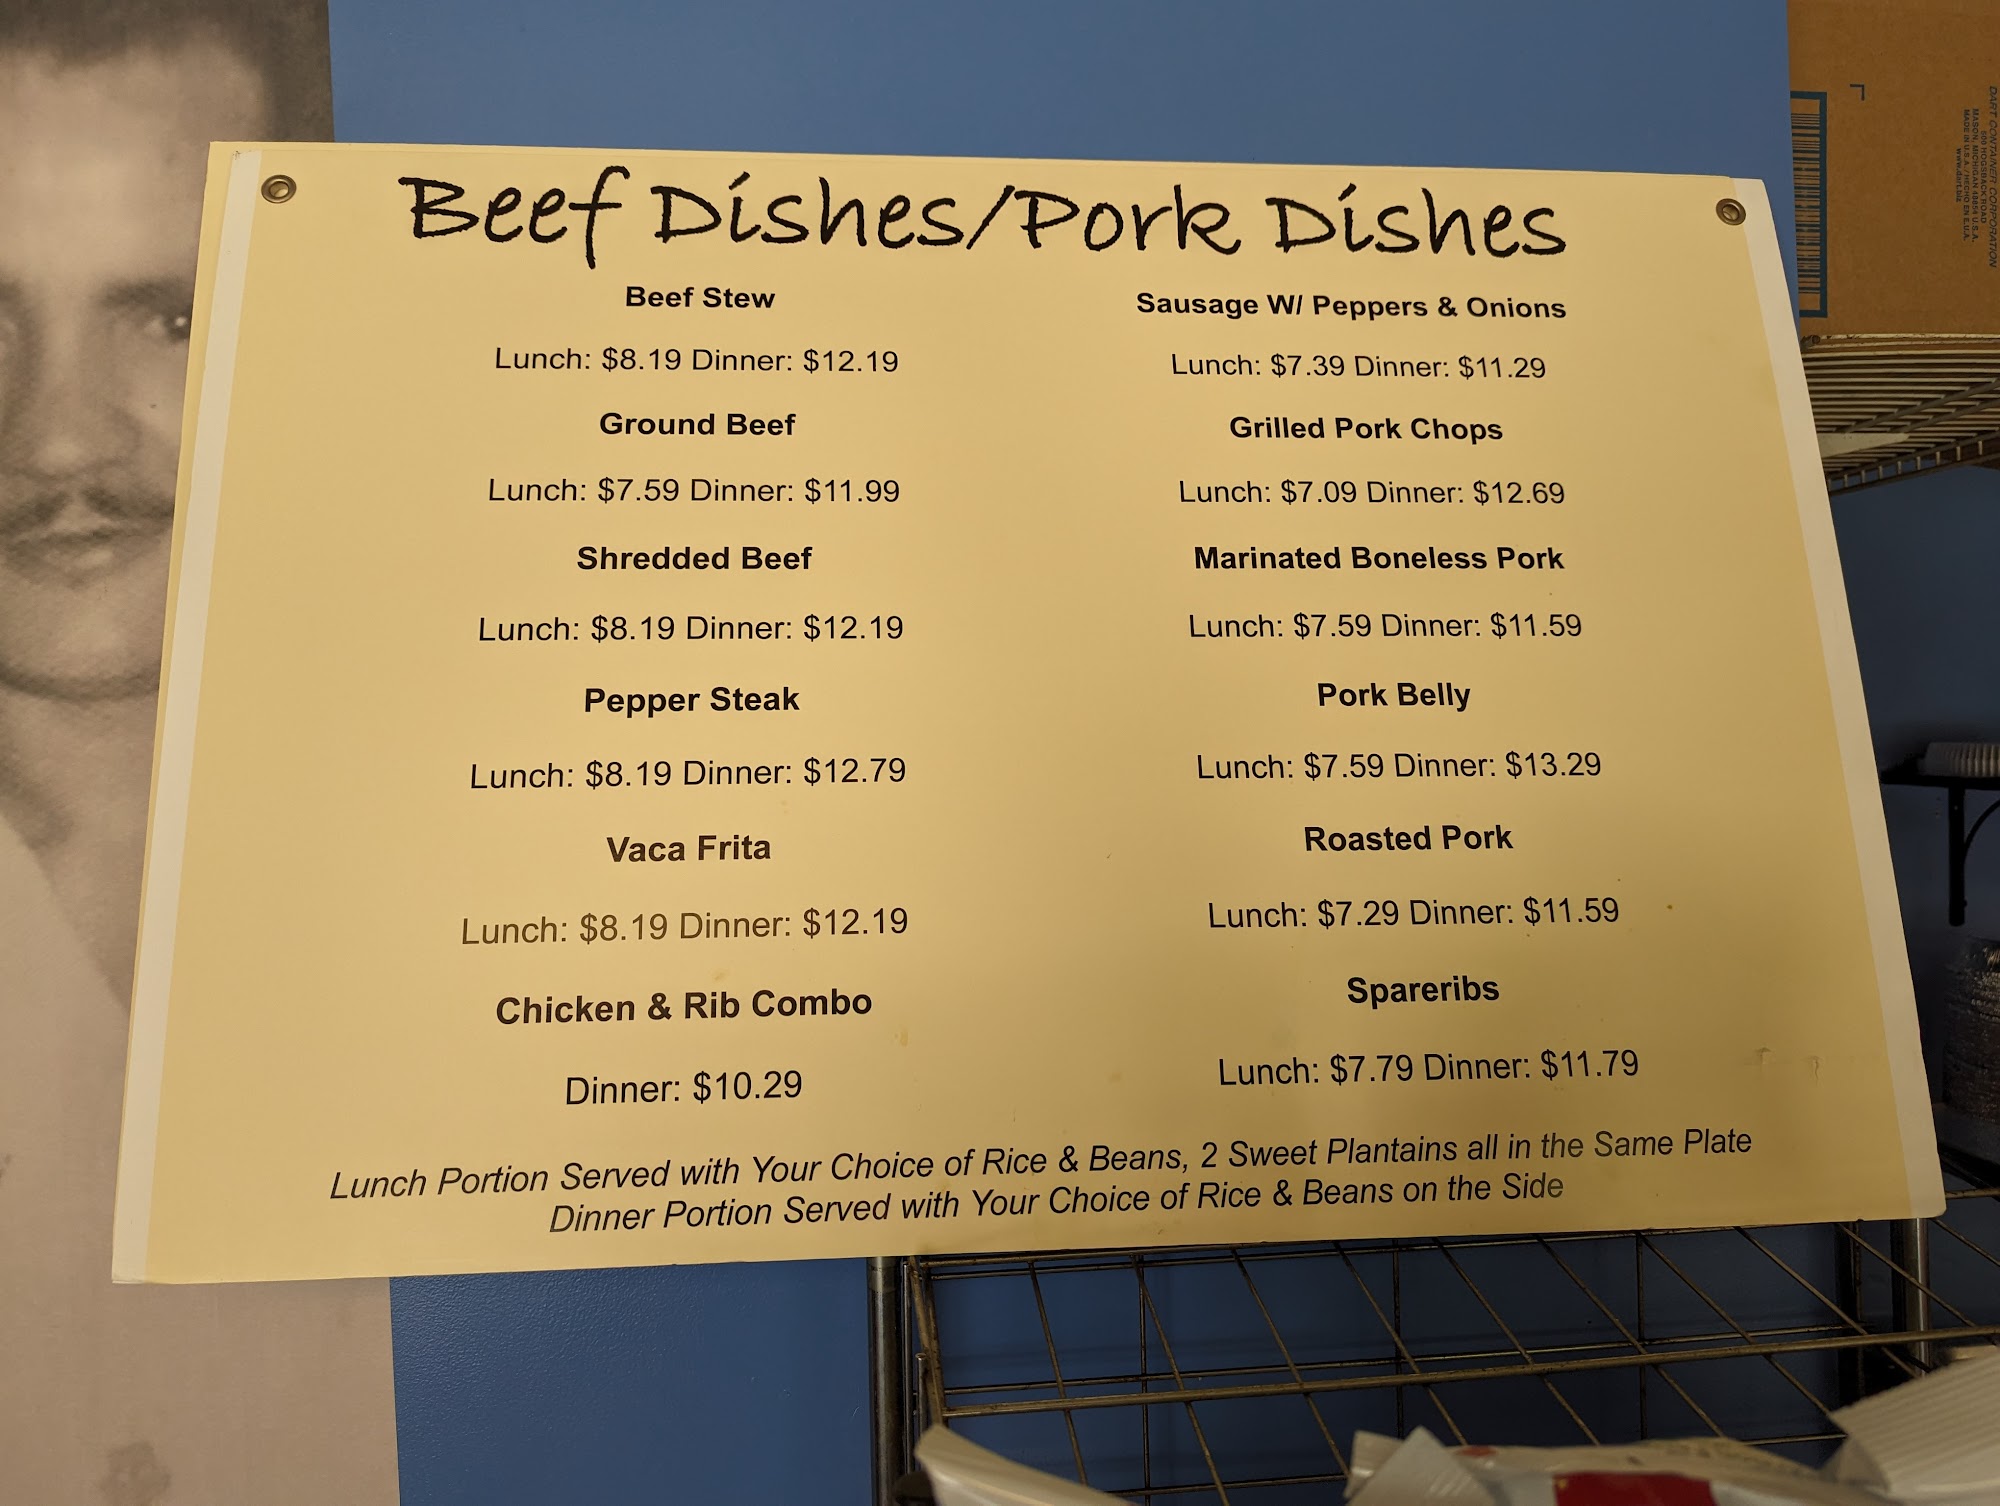 Beef Dishes/Pork Dishes
Beef Stew
Lunch: $8.19 Dinner: $12.19
Ground Beef
Lunch: $7.59 Dinner: $11.99
Shredded Beef
Lunch: $8.19 Dinner: $12.19
Pepper Steak
Lunch: $8.19 Dinner: $12.79
Vaca Frita
Lunch: $8.19 Dinner: $12.19
Chicken & Rib Combo
Dinner: $10.29
Sausage W/ Peppers & Onions
Lunch: $7.39 Dinner: $11.29
Grilled Pork Chops
Lunch: $7.09 Dinner: $12.69
Marinated Boneless Pork
Lunch: $7.59 Dinner: $11.59
Pork Belly
Lunch: $7.59 Dinner: $13.29
Roasted Pork
Lunch: $7.29 Dinner: $11.59
Spareribs
Lunch: $7.79 Dinner: $11.79
Lunch Portion Served with Your Choice of Rice & Beans, 2 Sweet Plantains all in the Same Plate
Dinner Portion Served with Your Choice of Rice & Beans on the Side
DART CONTAINER CORPORATION
500 HOGSBACK ROAD
MASON, MICHIGAN 48854 U.S.A.
MADE IN U.S.A. / HECHO EN E.U.A.
www.dart.biz